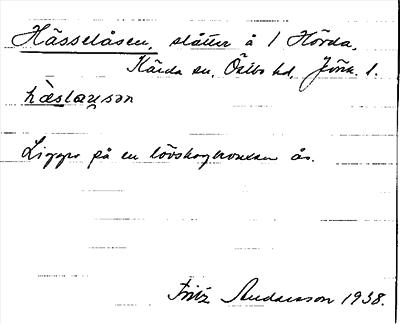 Hässelåsen, slåtter å 1 Hörda,
Kärda sn, Östbo hd, Jönk. l.
hæslaɯsən
Ligger på en lövskogbevuxen ås.
Fritz Andersson 1938.